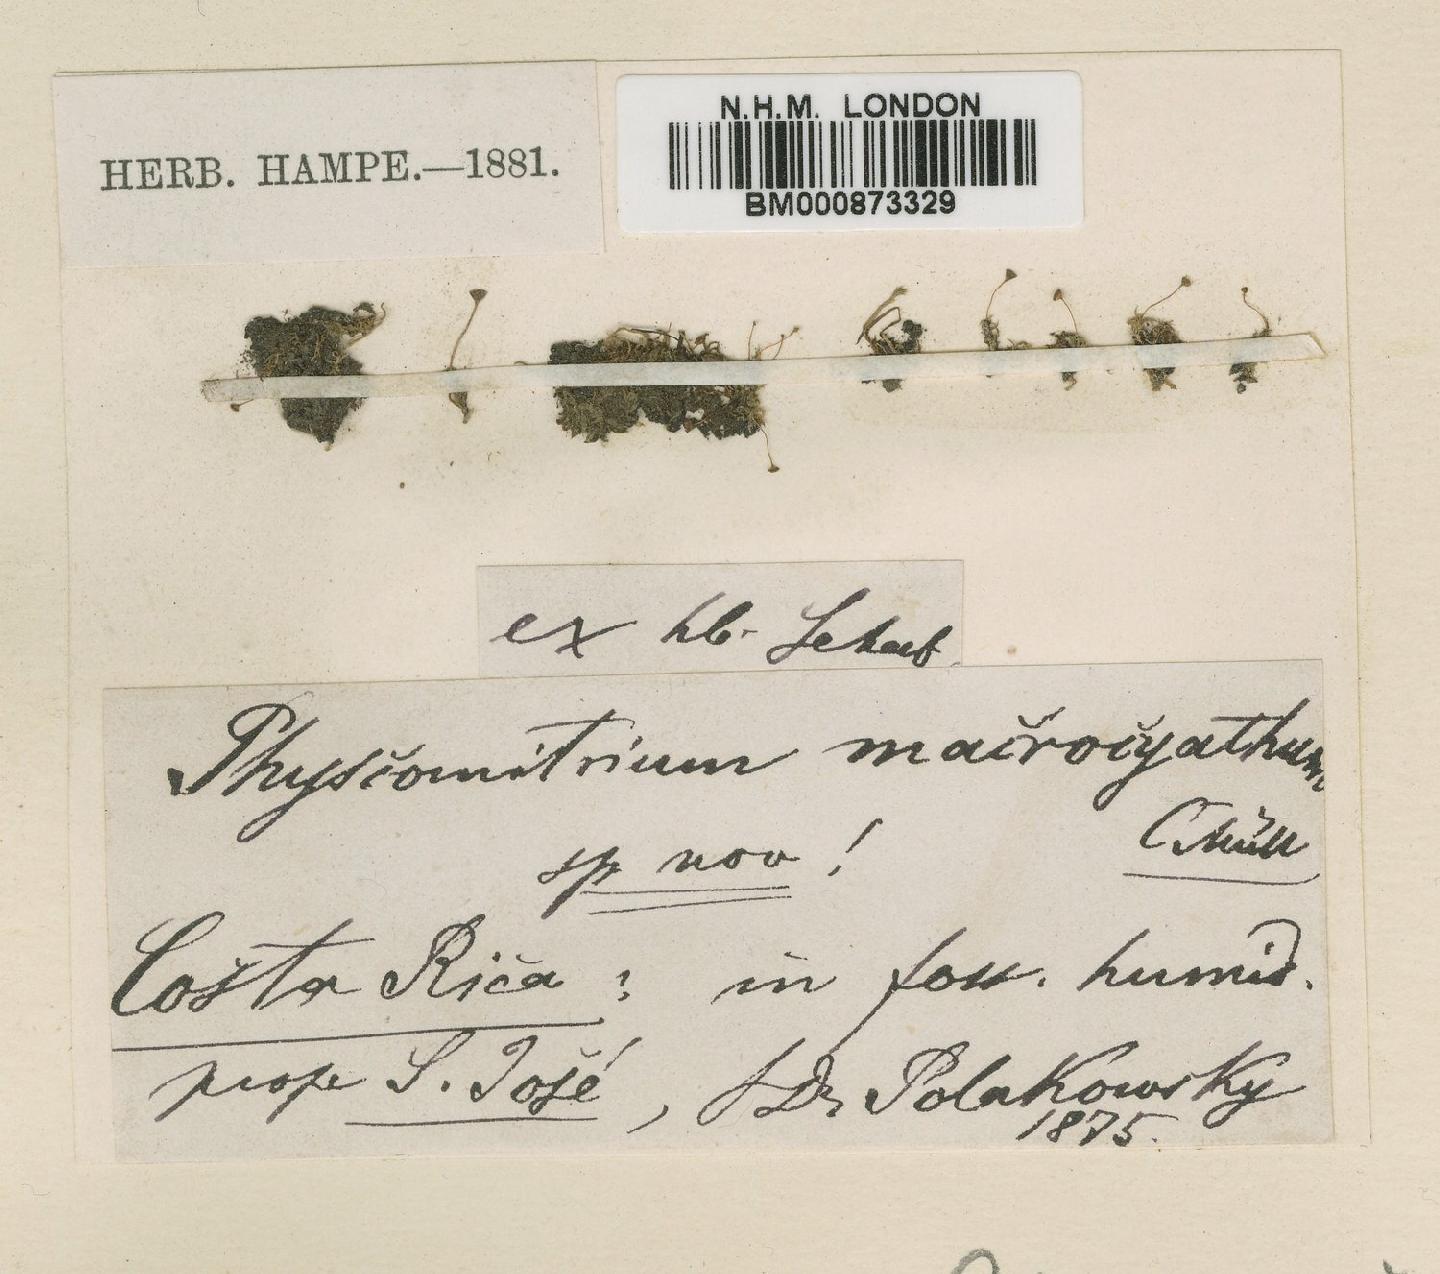 HERB. HAMPE.—1881.
N.H.M. LONDON
BM000873329
ex hb.
Physcomitrium macrocyathum
sp nov!
C Müll
Costa Rica: in foss. humid.
prope S. José, Dr Polakowsky
1875.